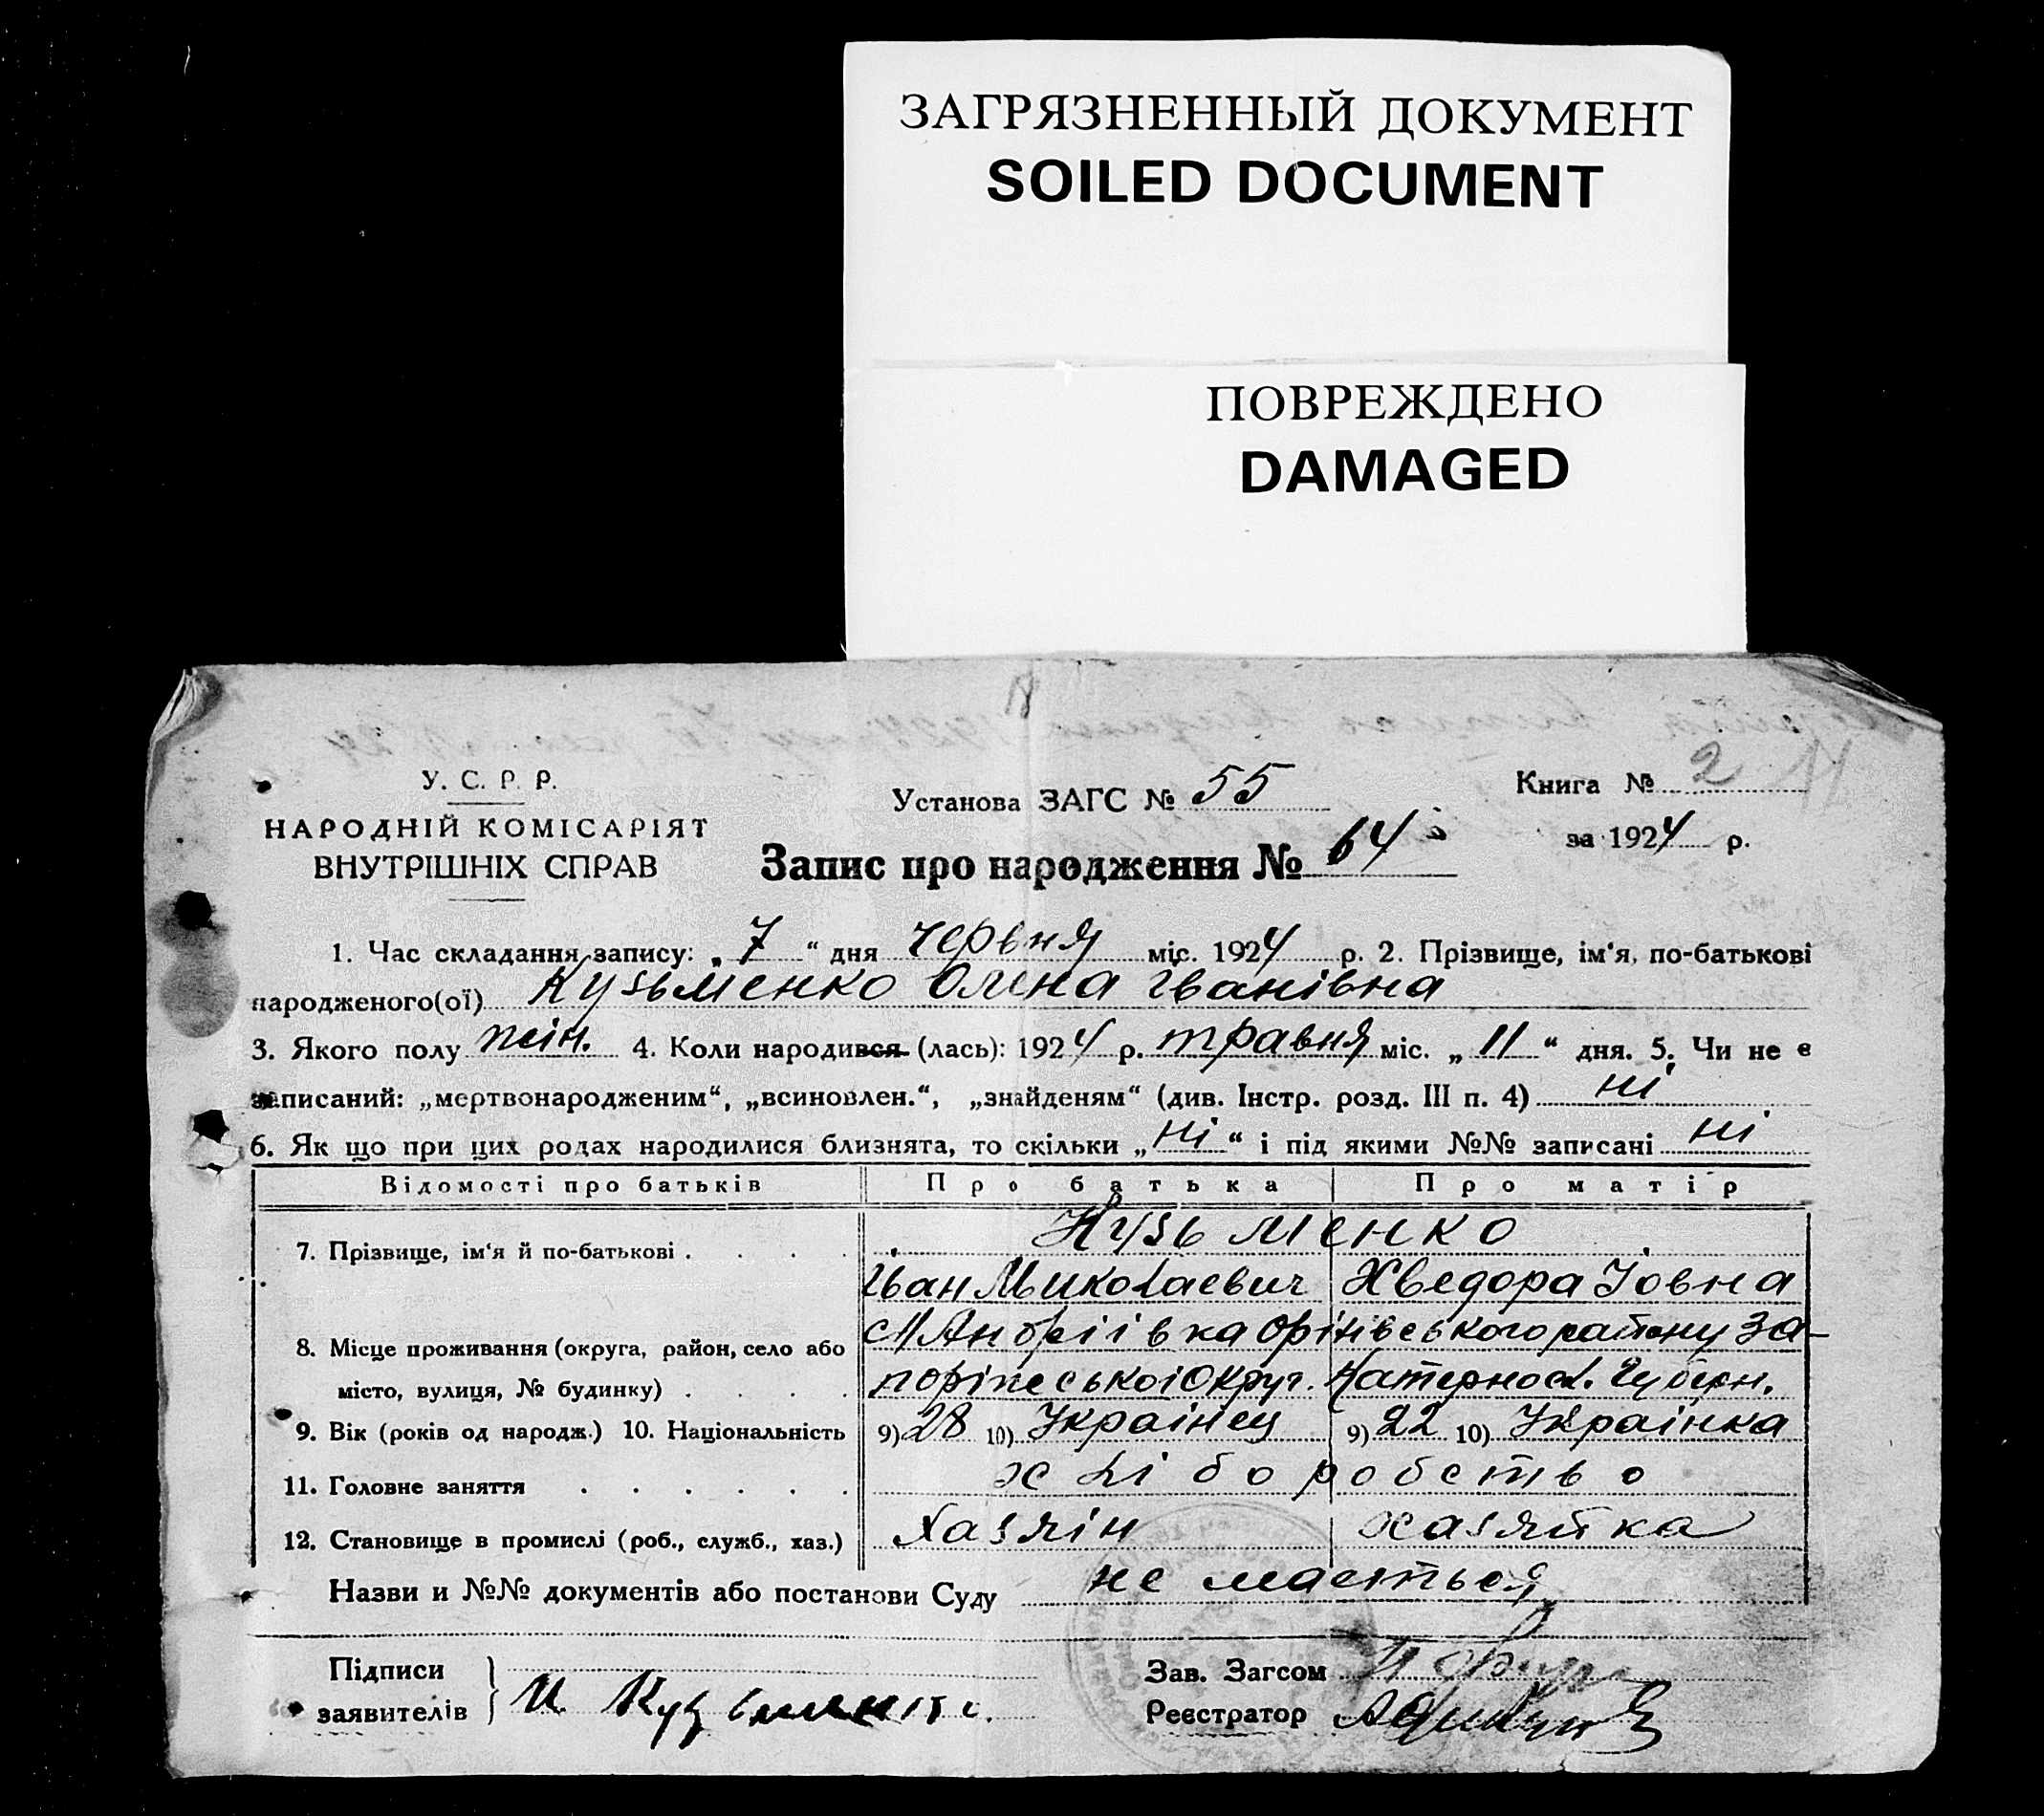 ЗАГРЯЗНЕННЫЙ ДОКУМЕНТ
SOILED DOCUMENT
ПОВРЕЖДЕНО
DAMAGED
У. С. Р. Р.
НАРОДНІЙ КОМІСАРІЯТ
ВНУТРІШНІХ СПРАВ
Установа ЗАГС № 55
Запис про народження № 64
Книга № 2
за 1924 р.
1. Час складання запису: „7“ дня червня міс. 1924 р. 2. Прізвище, ім'я, по-батькові
народженого(ої) Кузьменко Олена Іванівна
3. Якого полу жін. 4. Коли народився (лась): 1924 р. травня міс. „11“ дня. 5. Чи не є
записаний: „мертвонародженим“, „всиновлен.“, „знайденям“ (див. Інстр. розд. III п. 4) ні
6. Як що при цих родах народилися близнята, то скільки „ні“ і під якими №№ записані ні
Відомості про батьків Про батька Про матір
7. Прізвище, ім'я й по-батькові . . . . Кузьменко
Іван Миколаевич Хведора Іовна
8. Місце проживання (округа, район, село або с Андріівка Оріхівського району За-
місто, вулиця, № будинку) . . . . поріжськоі Округ. Катеринос. Губерн.
9. Вік (років од народж.) 10. Національність 9) 28 10) Украінец 9) 22 10) Украінка
11. Головне заняття . . . . . . хліборобство
12. Становище в промислі (роб., служб., хаз.) Хазяін хазяйка
Назви и №№ документів або постанови Суду не маеться
Підписи
заявителів И Кузьменко
Зав. Загсом
Реєстратор